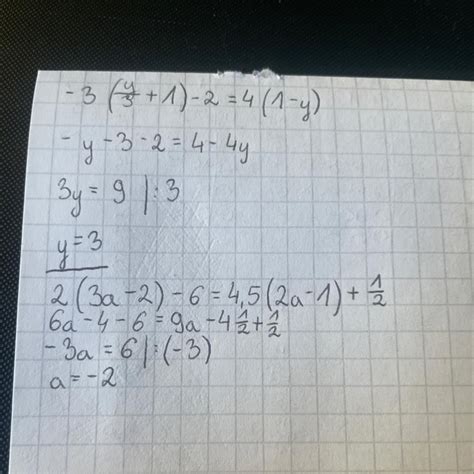 -3 (y/3 + 1) - 2 = 4 (1 - y)
- y - 3 - 2 = 4 - 4y
3y = 9 | : 3
y = 3
2 (3a - 2) - 6 = 4,5 (2a - 1) + 1/2
6a - 4 - 6 = 9a - 4 1/2 + 1/2
- 3a = 6 | : (-3)
a = -2